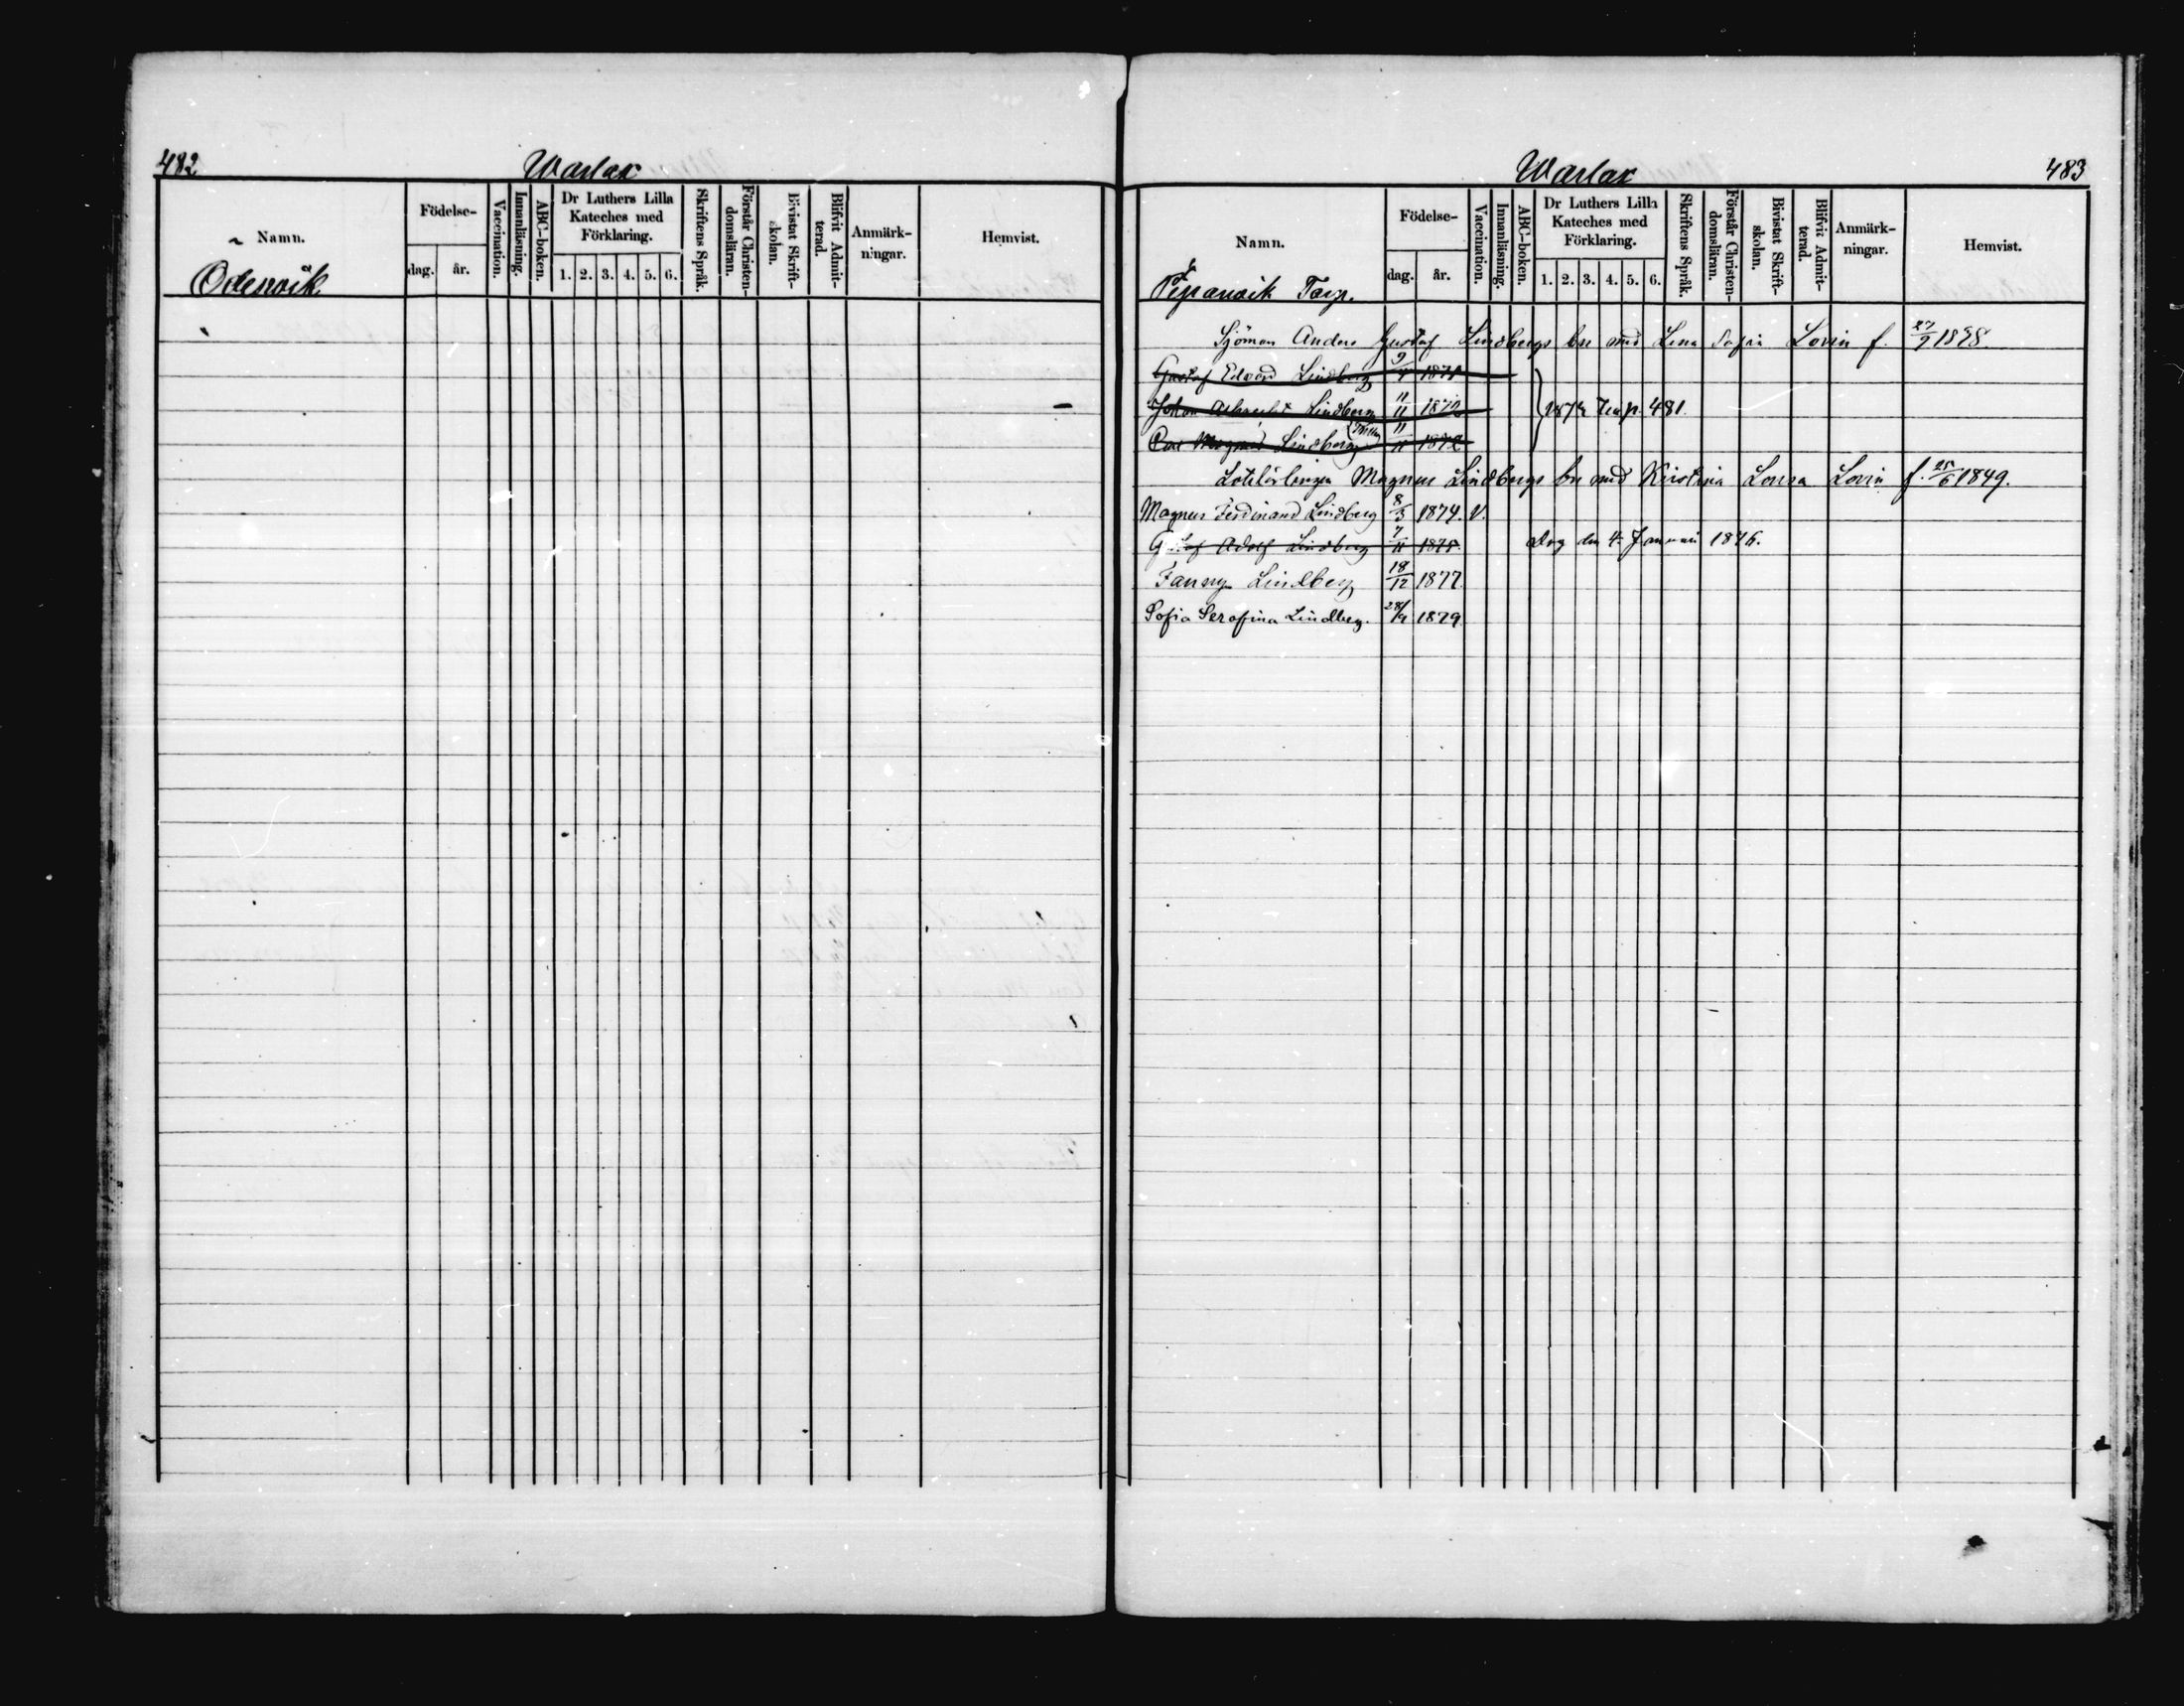 482
Warlax
Namn.
Födelse-
dag.
år.
Vaccination.
Innanläsning.
ABC-boken.
Dr Luthers Lilla
Kateches med
Förklaring.
1. 2. 3. 4. 5. 6.
Skriftens Språk.
Förstår Christen-
domsläran.
Bivistat Skrift-
skolan.
Blifvit Admit-
terad.
Anmärk-
ningar.
Hemvist.
Odenvik
Warlax
483
Namn.
Födelse-
dag.
år.
Vaccination.
Innanläsning.
ABC-boken.
Dr Luthers Lilla
Kateches med
Förklaring.
1. 2. 3. 4. 5. 6.
Skriftens Språk.
Förstår Christen-
domsläran.
Bivistat Skrift-
skolan.
Blifvit Admit-
terad.
Anmärk-
ningar.
Hemvist.
Torp.
Sjöman Anders Gustaf Lindbergs bn med Lena Sofia Lovin f.
Gustaf Edvard Lindberg 1871
Johan Lindberg 11/11 1872
Carl Magnus Lindberg 11/11 1872
481.
Magnus Lindbergs bn med Kristina Lovisa Lovin f. 25/6 1849.
Magnus Ferdinand Lindberg 8/3 1874. V.
Gustaf Adolf Lindberg 7/11 1875. Dog den 4. Januari 1876.
Fanny Lindberg 18/12 1877.
Sofia Serafina Lindberg. 1879.